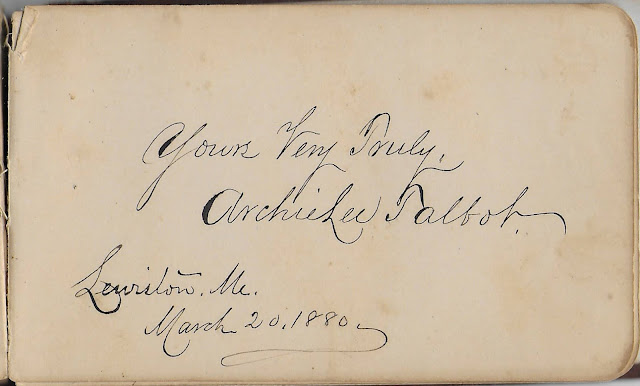 Yours Very Truly,
Archie Lee Talbot.
Lewiston. Me.
March 20, 1880.